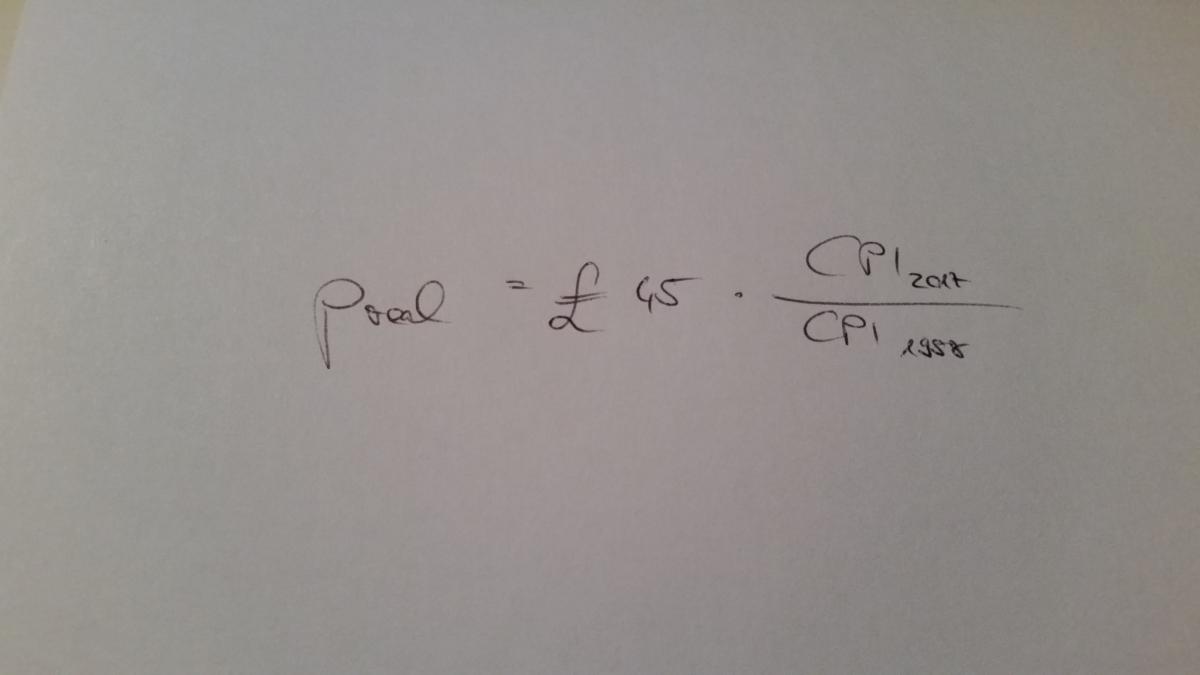 Preal = £ 45 · CPI2017
CPI1958